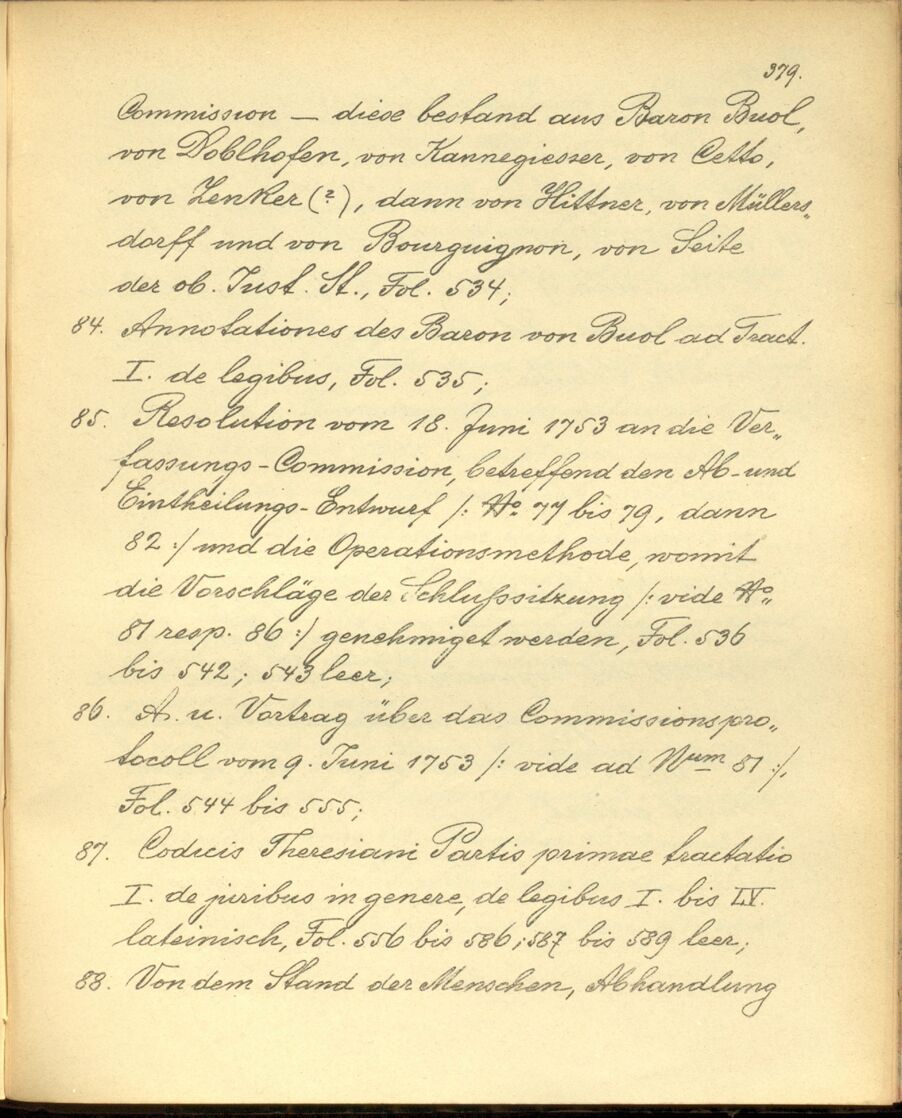 379.
Commission — diese bestand aus Baron Buol,
von Doblhofen, von Kannegiesser, von Cetto,
von Zenker (?), dann von Hittner, von Müllers„
dorff und von Bourguignon, von Seite
der ob. Just. St., Fol. 534;
84. Annotationes des Baron von Buol ad Tract.
I. de legibus, Fol. 535;
85. Resolution vom 18. Juni 1753 an die Ver„
fassungs-Commission, betreffend den Ab- und
Eintheilungs-Entwurf /: No. 77 bis 79, dann
82 :/ und die Operationsmethode, womit
die Vorschläge der Schlußsitzung /: vide No„
81 resp. 86 :/ genehmiget werden, Fol. 536
bis 542; 543 leer;
86. A. u. Vortrag über das Commissionspro„
tocoll vom 9. Juni 1753 /: vide ad Num 81 :/,
Fol. 544 bis 555;
87. Codicis Theresiani Partis primae tractatio
I. de juribus in genere, de legibus I. bis LV.
lateinisch, Fol. 556 bis 586; 587 bis 589 leer;
88. Von dem Stand der Menschen, Abhandlung